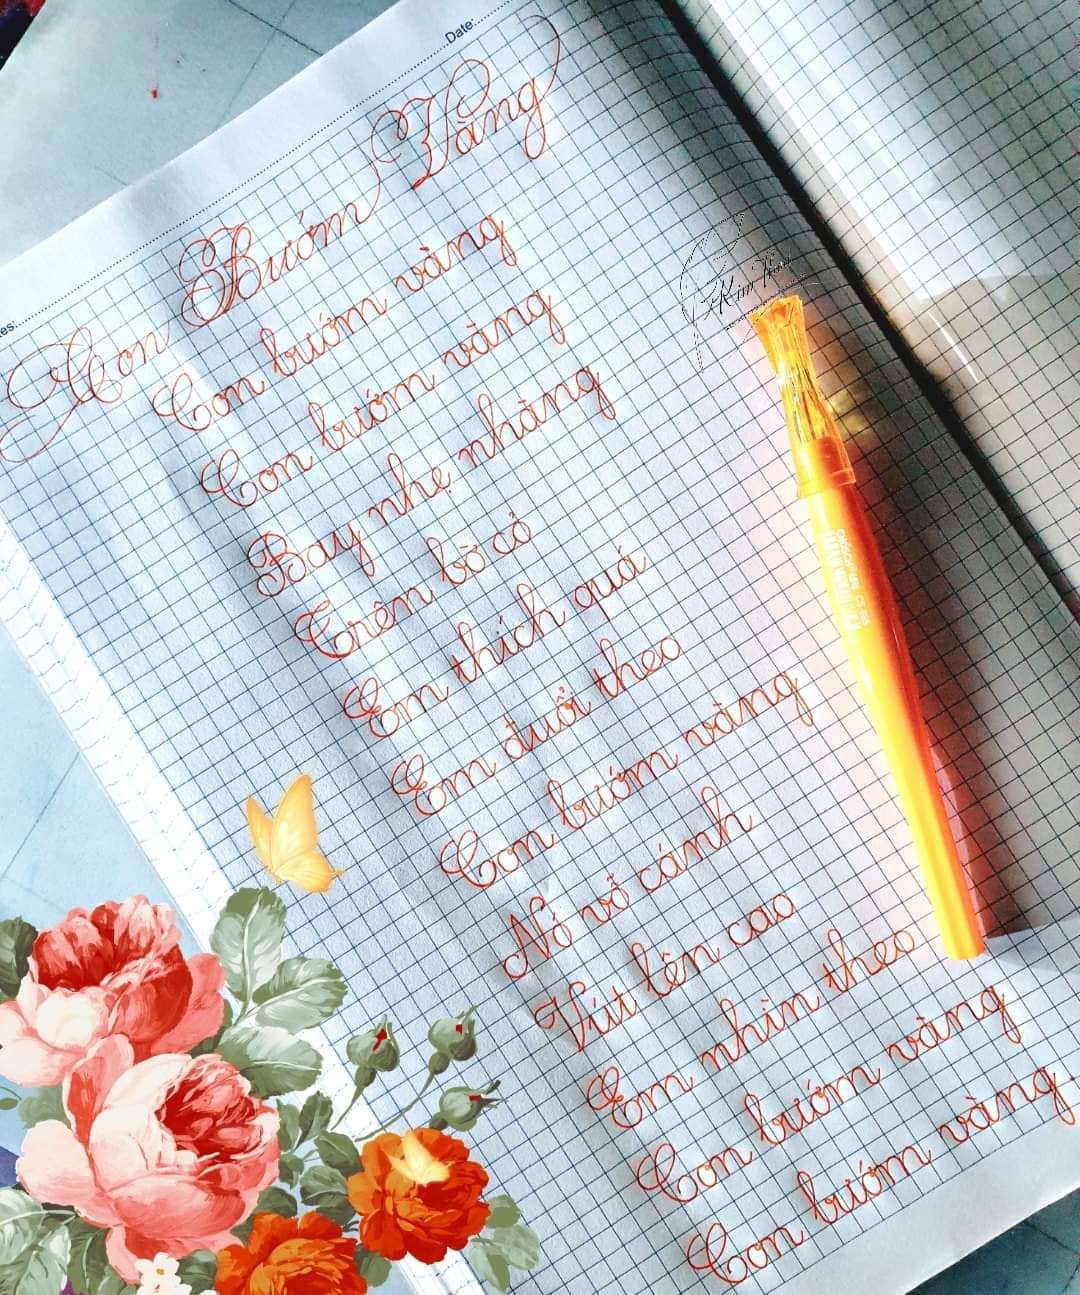 Date:
Con Bướm Vàng
Con bướm vàng
Con bướm vàng
Bay nhẹ nhàng
Trên bờ cỏ
Em thích quá
Em đuổi theo
Con bướm vàng
Nó vỗ cánh
Vút lên cao
Em nhìn theo
Con bướm vàng
Con bướm vàng